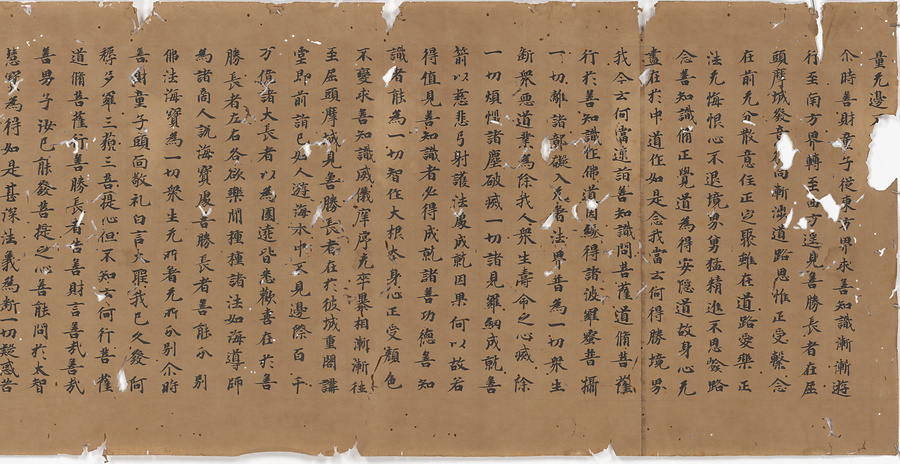 量无邊
尒時善財童子從東方界求善知識漸漸遊
行至南方界轉至西方遥見善勝長者在屈
頭摩城發意向漸涉道路思惟正受繫念
在前不散意住正定聚雖在道路愛樂正
法无悔恨心不退境界勇猛精進不思發路
念善知識脩正覺道為得安隱道故身心无
在於中道作如是念我當云何得勝境界
我今云何當速詣善知識問菩薩道脩菩薩
行於善知識住佛道因緣得諸波羅蜜普攝
一切離諸鄣礙入无㝵法界普為一切衆生
斷衆惡道業為除我人衆生壽命之心滅除
一切煩惱諸塵破滅一切諸見羅網成就善
箭以慈悲弓射護法處成就因果何以故若
得值見善知識者必得成就諸善功德善知
識者能為一切智住大根本身心正受顏色
不變求善知識威儀庠序无卒暴相漸漸往
至屈頭摩城見善勝長者在於彼城重閣講
堂即前詣已如人遊海水中不見邊際百千
万億諸大長者以為圍遶咸悉歡喜在於善
勝長者左右各欲樂聞種種諸法如海導師
為諸商人說海寶處善勝長者善能分別
佛法海寶為一切衆生无所著无所分別尒時
善財童子頭面敬礼白言大聖我已久發阿
耨多羅三藐三菩提心但不知云何行菩薩
道脩菩薩行善勝長者告善財言善哉善哉
善男子汝已能發菩提之心善能問於大智
慧寶為得如是甚深法義為斷一切疑惑普